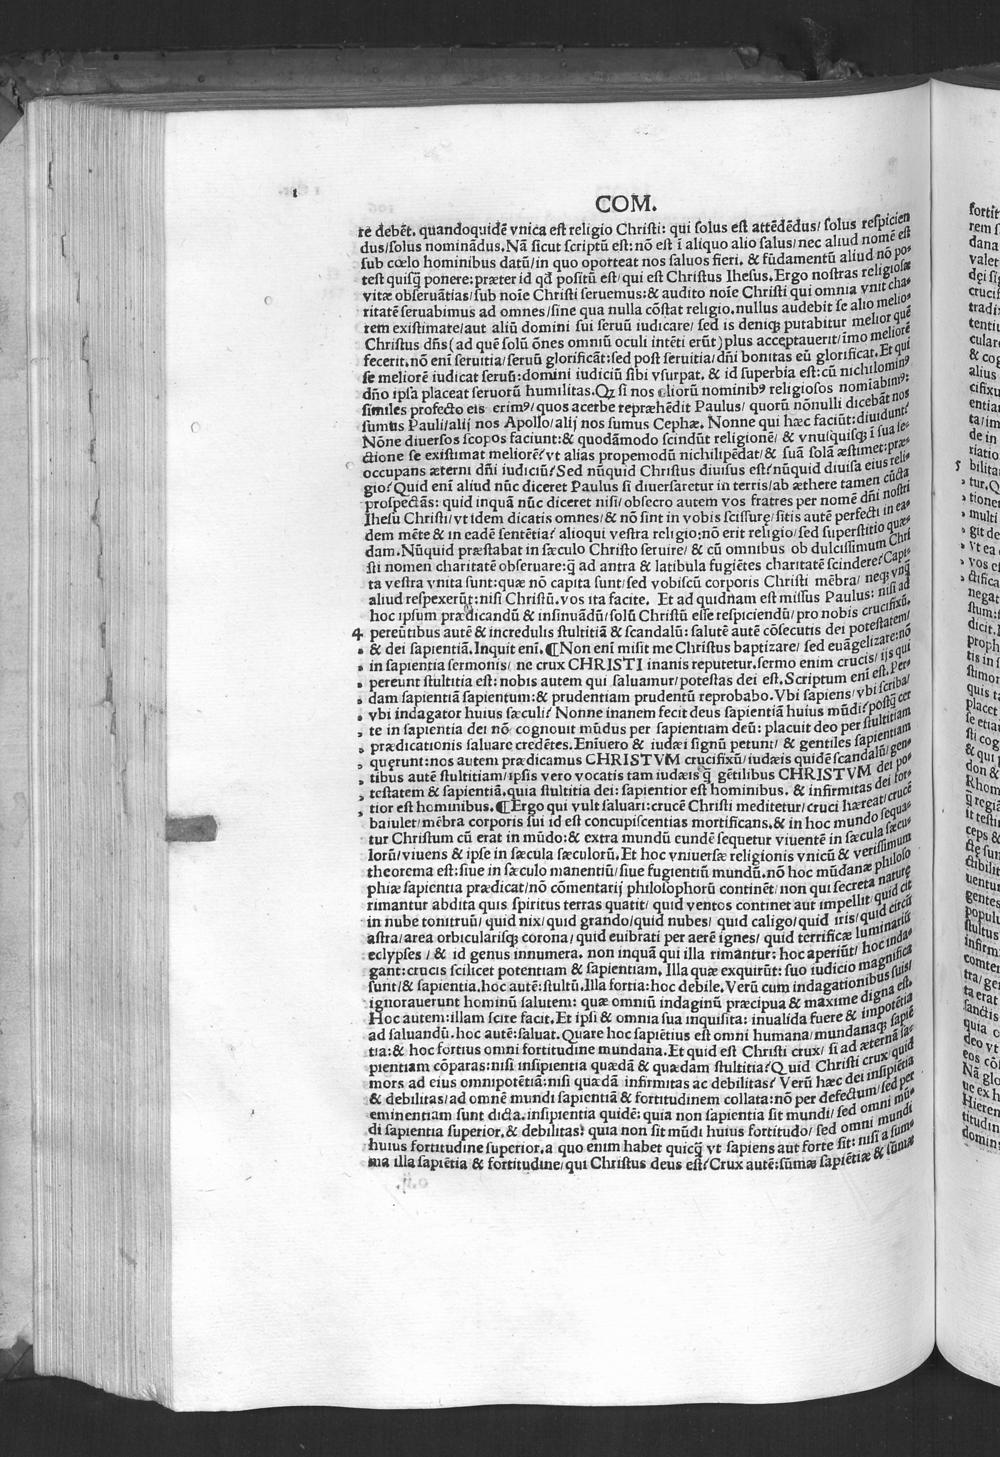 COM.
re debēt. quandoquidē vnica est religio Christi: qui solus est attēdēdus/ solus respicien
dus/solus nominādus. Nā sicut scriptū est: nō est ī aliquo alio salus/ nec aliud nomē est
sub cœlo hominibus datū/ in quo oporteat nos saluos fieri. & fūdamentū aliud nō po⸗
test quisq̄ ponere: præter id qđ positū est/ qui est Christus Ihesus. Ergo nostras religiosæ
vitæ obseruātias/ sub noīe Christi seruemus: & audito noīe Christi qui omnia vnit cha⸗
ritatē seruabimus ad omnes/ sine qua nulla cōstat religio. nullus audebit se alio melio⸗
rem existimate/ aut aliū domini sui seruū iudicare/ sed is deniqꝫ putabitur melior quē
Christus dñs (ad quē solū ōnes omniū oculi intēti erūt) plus acceptauerit/ īmo meliorē
fecerit. nō enī seruitia/ seruū glorificāt: sed post seruitia/ dñi bonitas eū glorificat. Et qui
se meliorē iudicat seruū: domini iudiciū sibi vsurpat. & id superbia est: cū nichilominꝰ
dño ipsa placeat seruorū humilitas. Qꝫ si nos eliorū nominibꝰ religiosos nomīabimꝰ:
similes profecto eis erimꝰ/ quos acerbe repræhēdit Paulus/ quorū nōnulli dicebāt nos
sumus Pauli/ alij nos Apollo/ alij nos sumus Cephæ. Nonne qui hæc faciūt: diuidunt?
Nōne diuersos scopos faciunt: & quodāmodo scindūt religionē/ & vnusquisqꝫ ī sua se⸗
ctione se existimat meliorē? vt alias propemodū nichilipēdat/ & suā solā æstimet: præ⸗
occupans æterni dñi iudiciū? Sed nūquid Christus diuisus est? nūquid diuisa eius reli⸗
gio? Quid enī aliud nūc diceret Paulus si diuersaretur in terris/ ab æthere tamen cūcta
prospectās: quid inquā nūc diceret nisi/ obsecro autem vos fratres per nomē dñi nostri
Ihesu Christi/ vt idem dicatis omnes/ & nō sint in vobis scissurę/ sitis autē perfecti in ea⸗
dem mēte & in eadē sentētia? alioqui vestra religio: nō erit religio/ sed superstitio quæ⸗
dam. Nūquid præstabat in sæculo Christo seruire/ & cū omnibus ob dulcissimum Chri
sti nomen charitatē obseruare: q̄ ad antra & latibula fugiētes charitatē scindere? Capi⸗
ta vestra vnita sunt: quæ nō capita sunt/ sed vobiscū corporis Christi mēbra/ neqꝫ vnq̄
aliud respexerūt: nisi Christū. vos ita facite. Et ad quidnam est missus Paulus: nisi ad
hoc ipsum prædicandū & insinuādū/ solū Christū esse respiciendū/ pro nobis crucifixū.
4 pereūtibus autē & incredulis stultitiā & scandalū: salutē autē cōsecutis dei potestatem/
& dei sapientiā. Inquit enī. ¶Non enī misit me Christus baptizare/ sed euāgelizare: nō
in sapientia sermonis/ ne crux CHRISTI inanis reputetur. sermo enim crucis/ ijs qui
pereunt stultitia est: nobis autem qui saluamur/ potestas dei est. Scriptum enī est. Per⸗
dam sapientiā sapientum: & prudentiam prudentū reprobabo. Vbi sapiens/ vbi scriba/
vbi indagator huius sæculi? Nonne inanem fecit deus sapientiā huius mūdi? postq̄ cer
te in sapientia dei nō cognouit mūdus per sapientiam deū: placuit deo per stultitiam
prædicationis saluare credētes. Enīuero & iudæi signū petunt/ & gentiles sapientiam
quęrunt: nos autem prædicamus CHRISTVM crucifixū/ iudæis quidē scandalū/ gen⸗
tibus autē stultitiam/ ipsis vero vocatis tam iudæis q̄ gētilibus CHRISTVM dei po⸗
testatem & sapientiā. quia stultitia dei: sapientior est hominibus. & infirmitas dei for⸗
tior est hominibus. ¶Ergo qui vult saluari: crucē Christi meditetur/ cruci hæreat/ crucē
baiulet/ mēbra corporis sui id est concupiscentias mortificans. & in hoc mundo sequa⸗
tur Christum cū erat in mūdo: & extra mundū eundē sequetur viuentē in sæcula sæcu⸗
lorū/ viuens & ipse in sæcula sæculorū. Et hoc vniuersæ religionis vnicū & verissimum
theorema est: siue in sæculo manentiū/ siue fugientiū mundū. nō hoc mūdanæ philoso
phiæ sapientia prædicat/ nō cōmentarij philosophorū continēt/ non qui secreta naturę
rimantur abdita quis spiritus terras quatit/ quid ventos continet aut impellit/ quid cit
in nube tonitruū/ quid nix/ quid grando/ quid nubes/ quid caligo/ quid iris/ quid circū
astra/ area orbicularisqꝫ corona/ quid euibrati per aerē ignes/ quid terrificæ luminariū
eclypses/ & id genus innumera. non inquā qui illa rimantur: hoc aperiūt/ hoc inda⸗
gant: crucis scilicet potentiam & sapientiam. Illa quæ exquirūt: suo iudicio magnifica
sunt/ & sapientia. hoc autē: stultū. Illa fortia: hoc debile. Verū cum indagationibus suis/
ignorauerunt hominū salutem: quæ omniū indaginū præcipua & maxime digna est.
Hoc autem: illam scire facit. Et ipsi & omnia sua inquisita: inualida fuere & impotētia
ad saluandū. hoc autē: saluat. Quare hoc sapiētius est omni humana/ mundanaqꝫ sapiē
tia: & hoc fortius omni fortitudine mundana. Et quid est Christi crux/ si ad æternā sa⸗
pientiam cōparas: nisi insipientia quædā & quædam stultitia? Quid Christi crux/ quid
mors ad eius omnipotētiā: nisi quædā infirmitas ac debilitas? Verū hæc dei insipiētia
& debilitas/ ad omnē mundi sapientiā & fortitudinem collata: nō per defectum/ sed per
eminentiam sunt dicta. insipientia quidē: quia non sapientia sit mundi/ sed omni mū⸗
di sapientia superior. & debilitas: quia non sit mūdi huius fortitudo/ sed omni mundi
huius fortitudine superior. a quo enim habet quicq̄ vt sapiens aut forte sit: nisi a sum⸗
ma illa sapiētia & fortitudine/ qui Christus deus est? Crux autē: sūmæ sapiētiæ & sūmæ